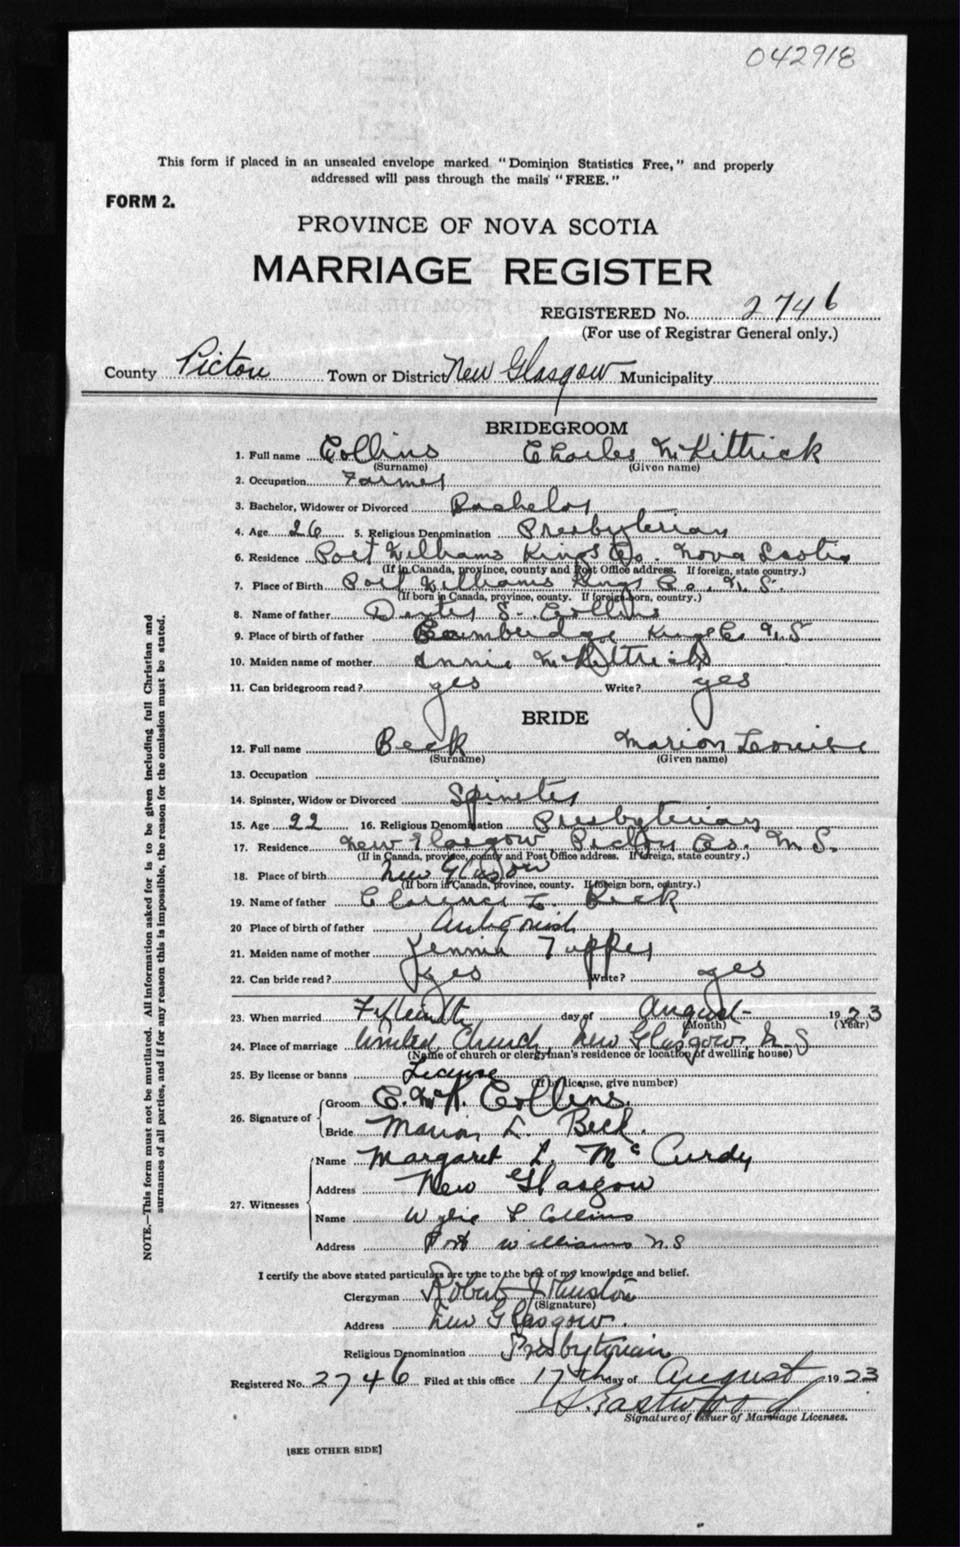 042918
This form if placed in an unsealed envelope marked "Dominion Statistics Free," and properly
addressed will pass through the mails "FREE."
FORM 2.
PROVINCE OF NOVA SCOTIA
MARRIAGE REGISTER
REGISTERED No. 2746
(For use of Registrar General only.)
County Pictou Town or District New Glasgow Municipality
BRIDEGROOM
1. Full name Collins Charles McKittrick
(Surname) (Given name)
2. Occupation Farmer
3. Bachelor, Widower or Divorced Bachelor
4. Age 26 5. Religious Denomination Presbyterian
6. Residence Port Williams Kings Co. Nova Scotia
(If in Canada, province, county and Post Office address. If foreign, state country.)
7. Place of Birth Port Williams Kings Co. N.S.
(If born in Canada, province, county. If foreign born, country.)
8. Name of father S. Collins
9. Place of birth of father Kings Co. N.S.
10. Maiden name of mother Annie McKittrick
11. Can bridegroom read? yes Write? yes
BRIDE
12. Full name Beck Marion Louise
(Surname) (Given name)
13. Occupation
14. Spinster, Widow or Divorced Spinster
15. Age 22 16. Religious Denomination Presbyterian
17. Residence New Glasgow Pictou Co. N.S.
(If in Canada, province, county and Post Office address. If foreign, state country.)
18. Place of birth New Glasgow
(If born in Canada, province, county. If foreign born, country.)
19. Name of father Clarence Beck
20 Place of birth of father Antigonish
21. Maiden name of mother Jennie Tupper
22. Can bride read? yes Write? yes
23. When married Fifteenth day of August 1923
(Month) (Year)
24. Place of marriage United Church, New Glasgow, N.S
(Name of church or clergyman's residence or location of dwelling house)
25. By license or banns License
(If by license, give number)
26. Signature of Groom C. McK. Collins.
Bride Marion L. Beck.
27. Witnesses Name Margaret L. McCurdy
Address New Glasgow
Name Wylie L. Collins
Address Port Williams N.S
I certify the above stated particulars are true to the best of my knowledge and belief.
Clergyman Robert Johnston
(Signature)
Address New Glasgow.
Religious Denomination Presbyterian
Registered No. 2746 Filed at this office 17th day of August 1923
Eastwood
Signature of Issuer of Marriage Licenses.
[SEE OTHER SIDE]
NOTE.—This form must not be mutilated. All information asked for is to be given including full Christian and
surnames of all parties, and if for any reason this is impossible, the reason for the omission must be stated.